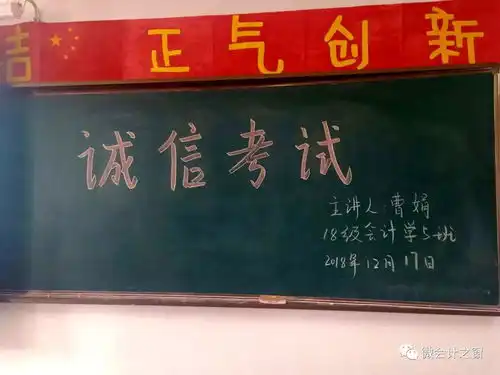 洁 正气创新
诚信考试
主讲人:曹娟
18级会计学5班
2018年12月17日
微会计之窗